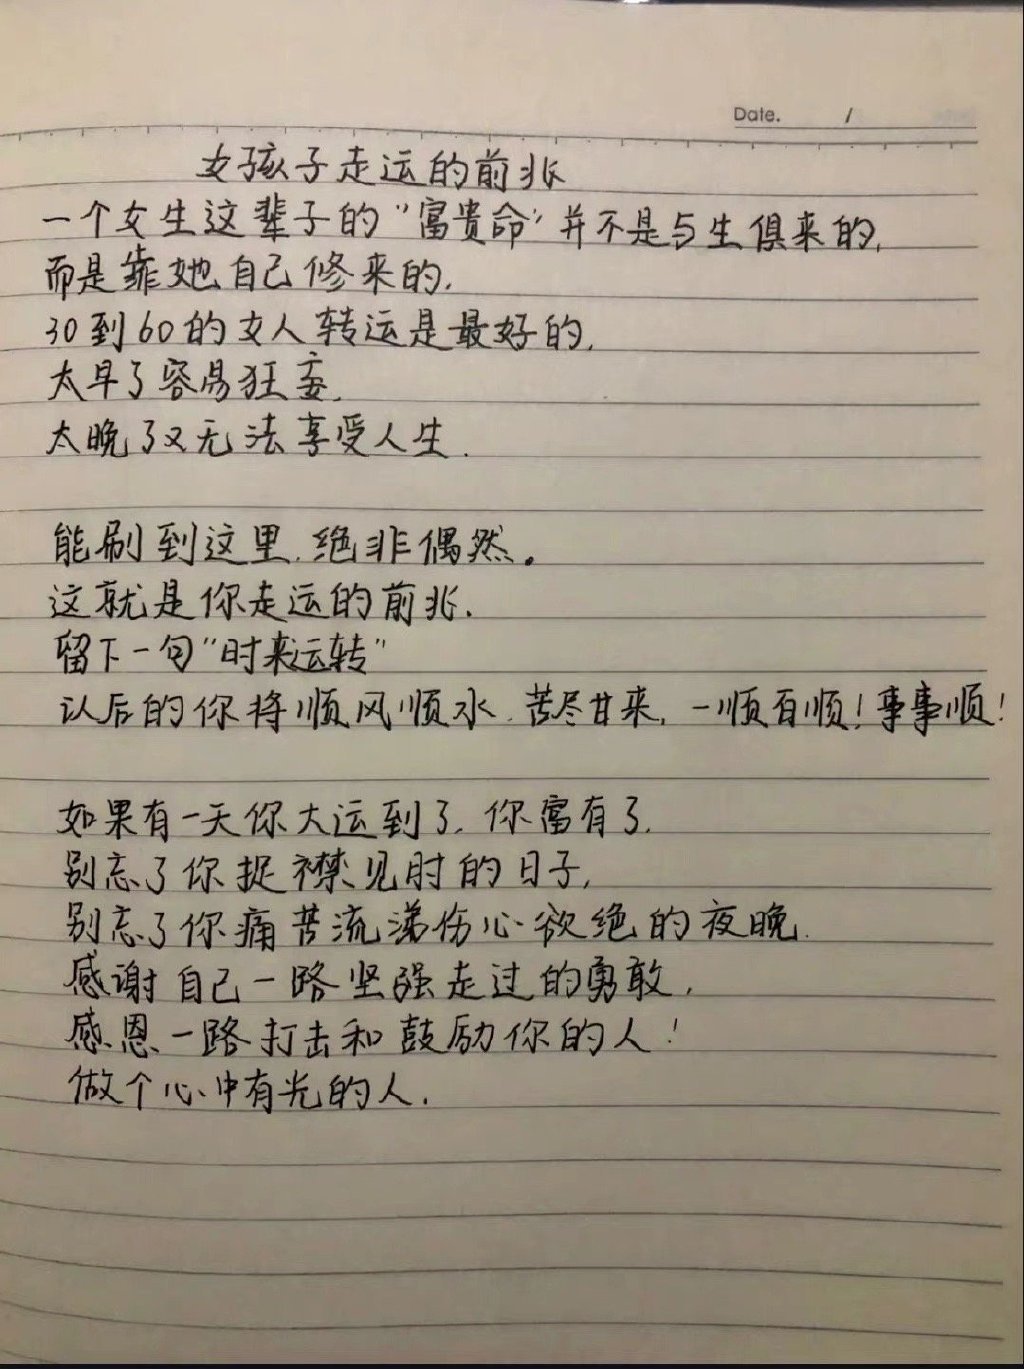 Date. /
女孩子走运的前兆
一个女生这辈子的“富贵命”并不是与生俱来的,
而是靠她自己修来的.
30到60的女人转运是最好的,
太早了容易狂妄,
太晚了又无法享受人生.
能刷到这里,绝非偶然。
这就是你走运的前兆.
留下一句“时来运转”
以后的你将顺风顺水,苦尽甘来,一顺百顺!事事顺!
如果有一天你大运到了,你富有了,
别忘了你捉襟见肘的日子,
别忘了你痛苦流涕伤心欲绝的夜晚.
感谢自己一路坚强走过的勇敢,
感恩一路打击和鼓励你的人!
做个心中有光的人.